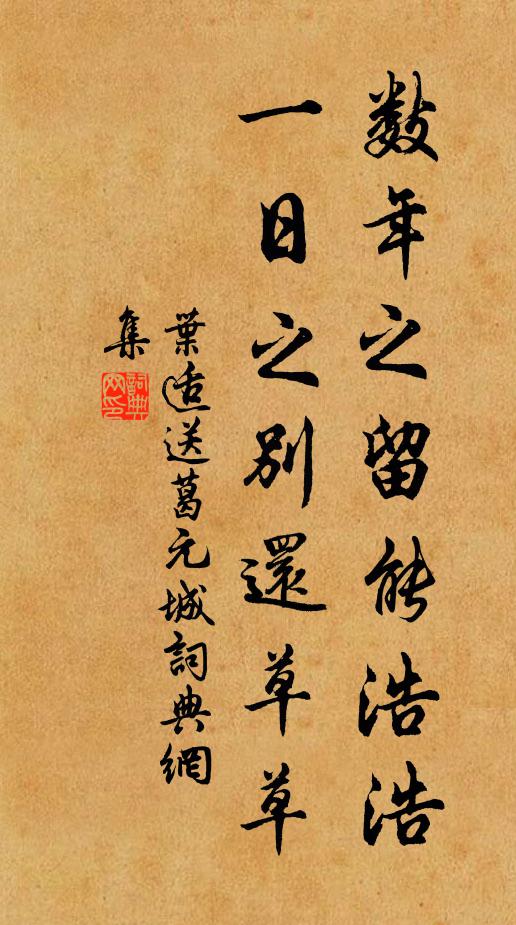 数年之留能浩浩
一日之别還草草
葉适送葛元城詞典網
集
詞典网印